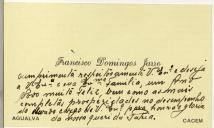 Francisco Domingos Jorge
cumprimenta respeitosamente V. Ex.ª e deseja
a V. Ex.ª e sua Ex.ma Familia, um Ano
Novo muito feliz, bem como as mais
completas prosperidades no desempenho
do cargo V. Ex.ª para honra e gloria
da nossa querida Patria.
AGUALVA
CACEM